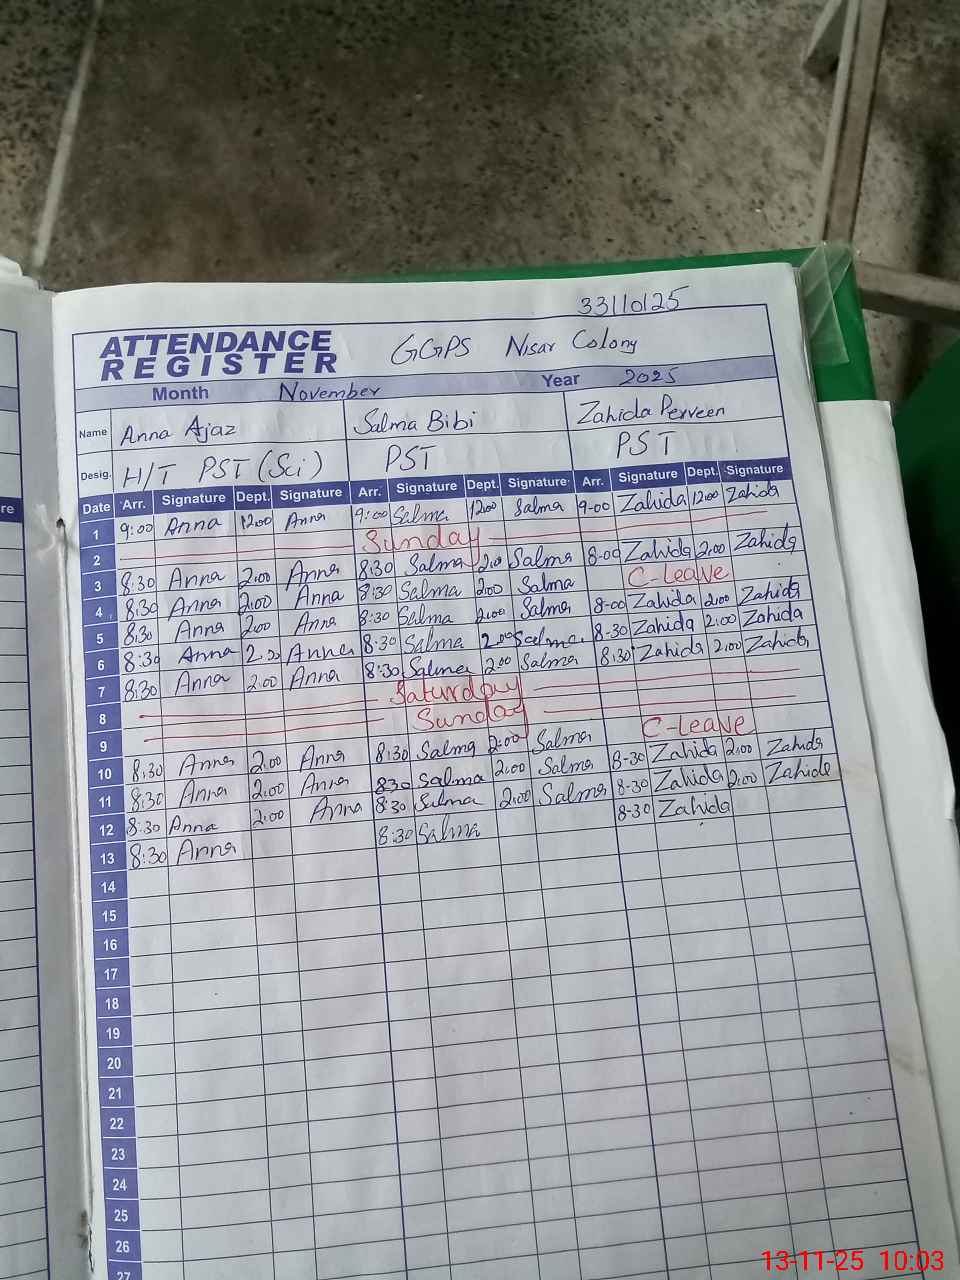 33110125
ATTENDANCE
REGISTER
GGPS Nisar Colony
Month November Year 2025
Name Anna Ajaz Salma Bibi Zahida Perveen
Desig. H/T PST (Sci) PST PST
Date Arr. Signature Dept. Signature Arr. Signature Dept. Signature Arr. Signature Dept. Signature
1 9:00 Anna 12:00 Anna 9:00 Salma 12:00 Salma 9-00 Zahida 12:00 Zahida
2 Sunday
3 8:30 Anna 2:00 Anna 8:30 Salma 2:00 Salma 8-00 Zahida 2:00 Zahida
4 8:30 Anna 2:00 Anna 8:30 Salma 2:00 Salma C-Leave
5 8:30 Anna 2:00 Anna 8:30 Salma 2:00 Salma 8-00 Zahida 2:00 Zahida
6 8:30 Anna 2:20 Anna 8:30 Salma 2:00 Salma 8-30 Zahida 2:00 Zahida
7 8:30 Anna 2:00 Anna 8:30 Salma 2:00 Salma 8:30 Zahida 2:00 Zahida
8 Saturday
9 Sunday
10 8:30 Anna 2:00 Anna 8:30 Salma 2:00 Salma C-Leave
11 8:30 Anna 2:00 Anna 8:30 Salma 2:00 Salma 8-30 Zahida 2:00 Zahida
12 8:30 Anna 2:00 Anna 8:30 Salma 2:00 Salma 8-30 Zahida 2:00 Zahida
13 8:30 Anna 8:30 Salma 8-30 Zahida
14
15
16
17
18
19
20
21
22
23
24
25
26
27
13-11-25 10:03